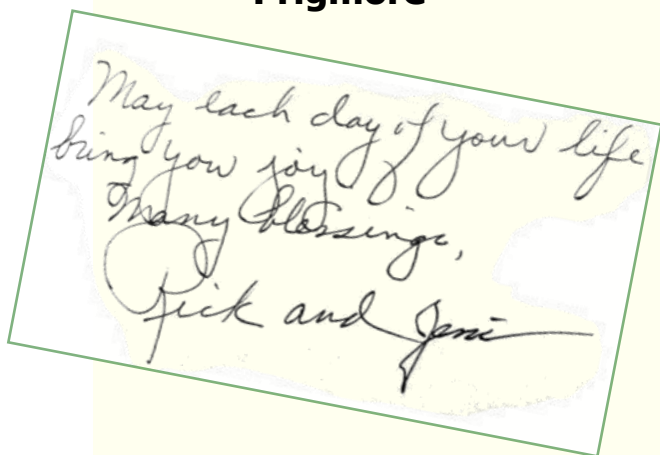 Prigmore
May each day of your life
bring you joy
Many blessings,
Rick and Jeni